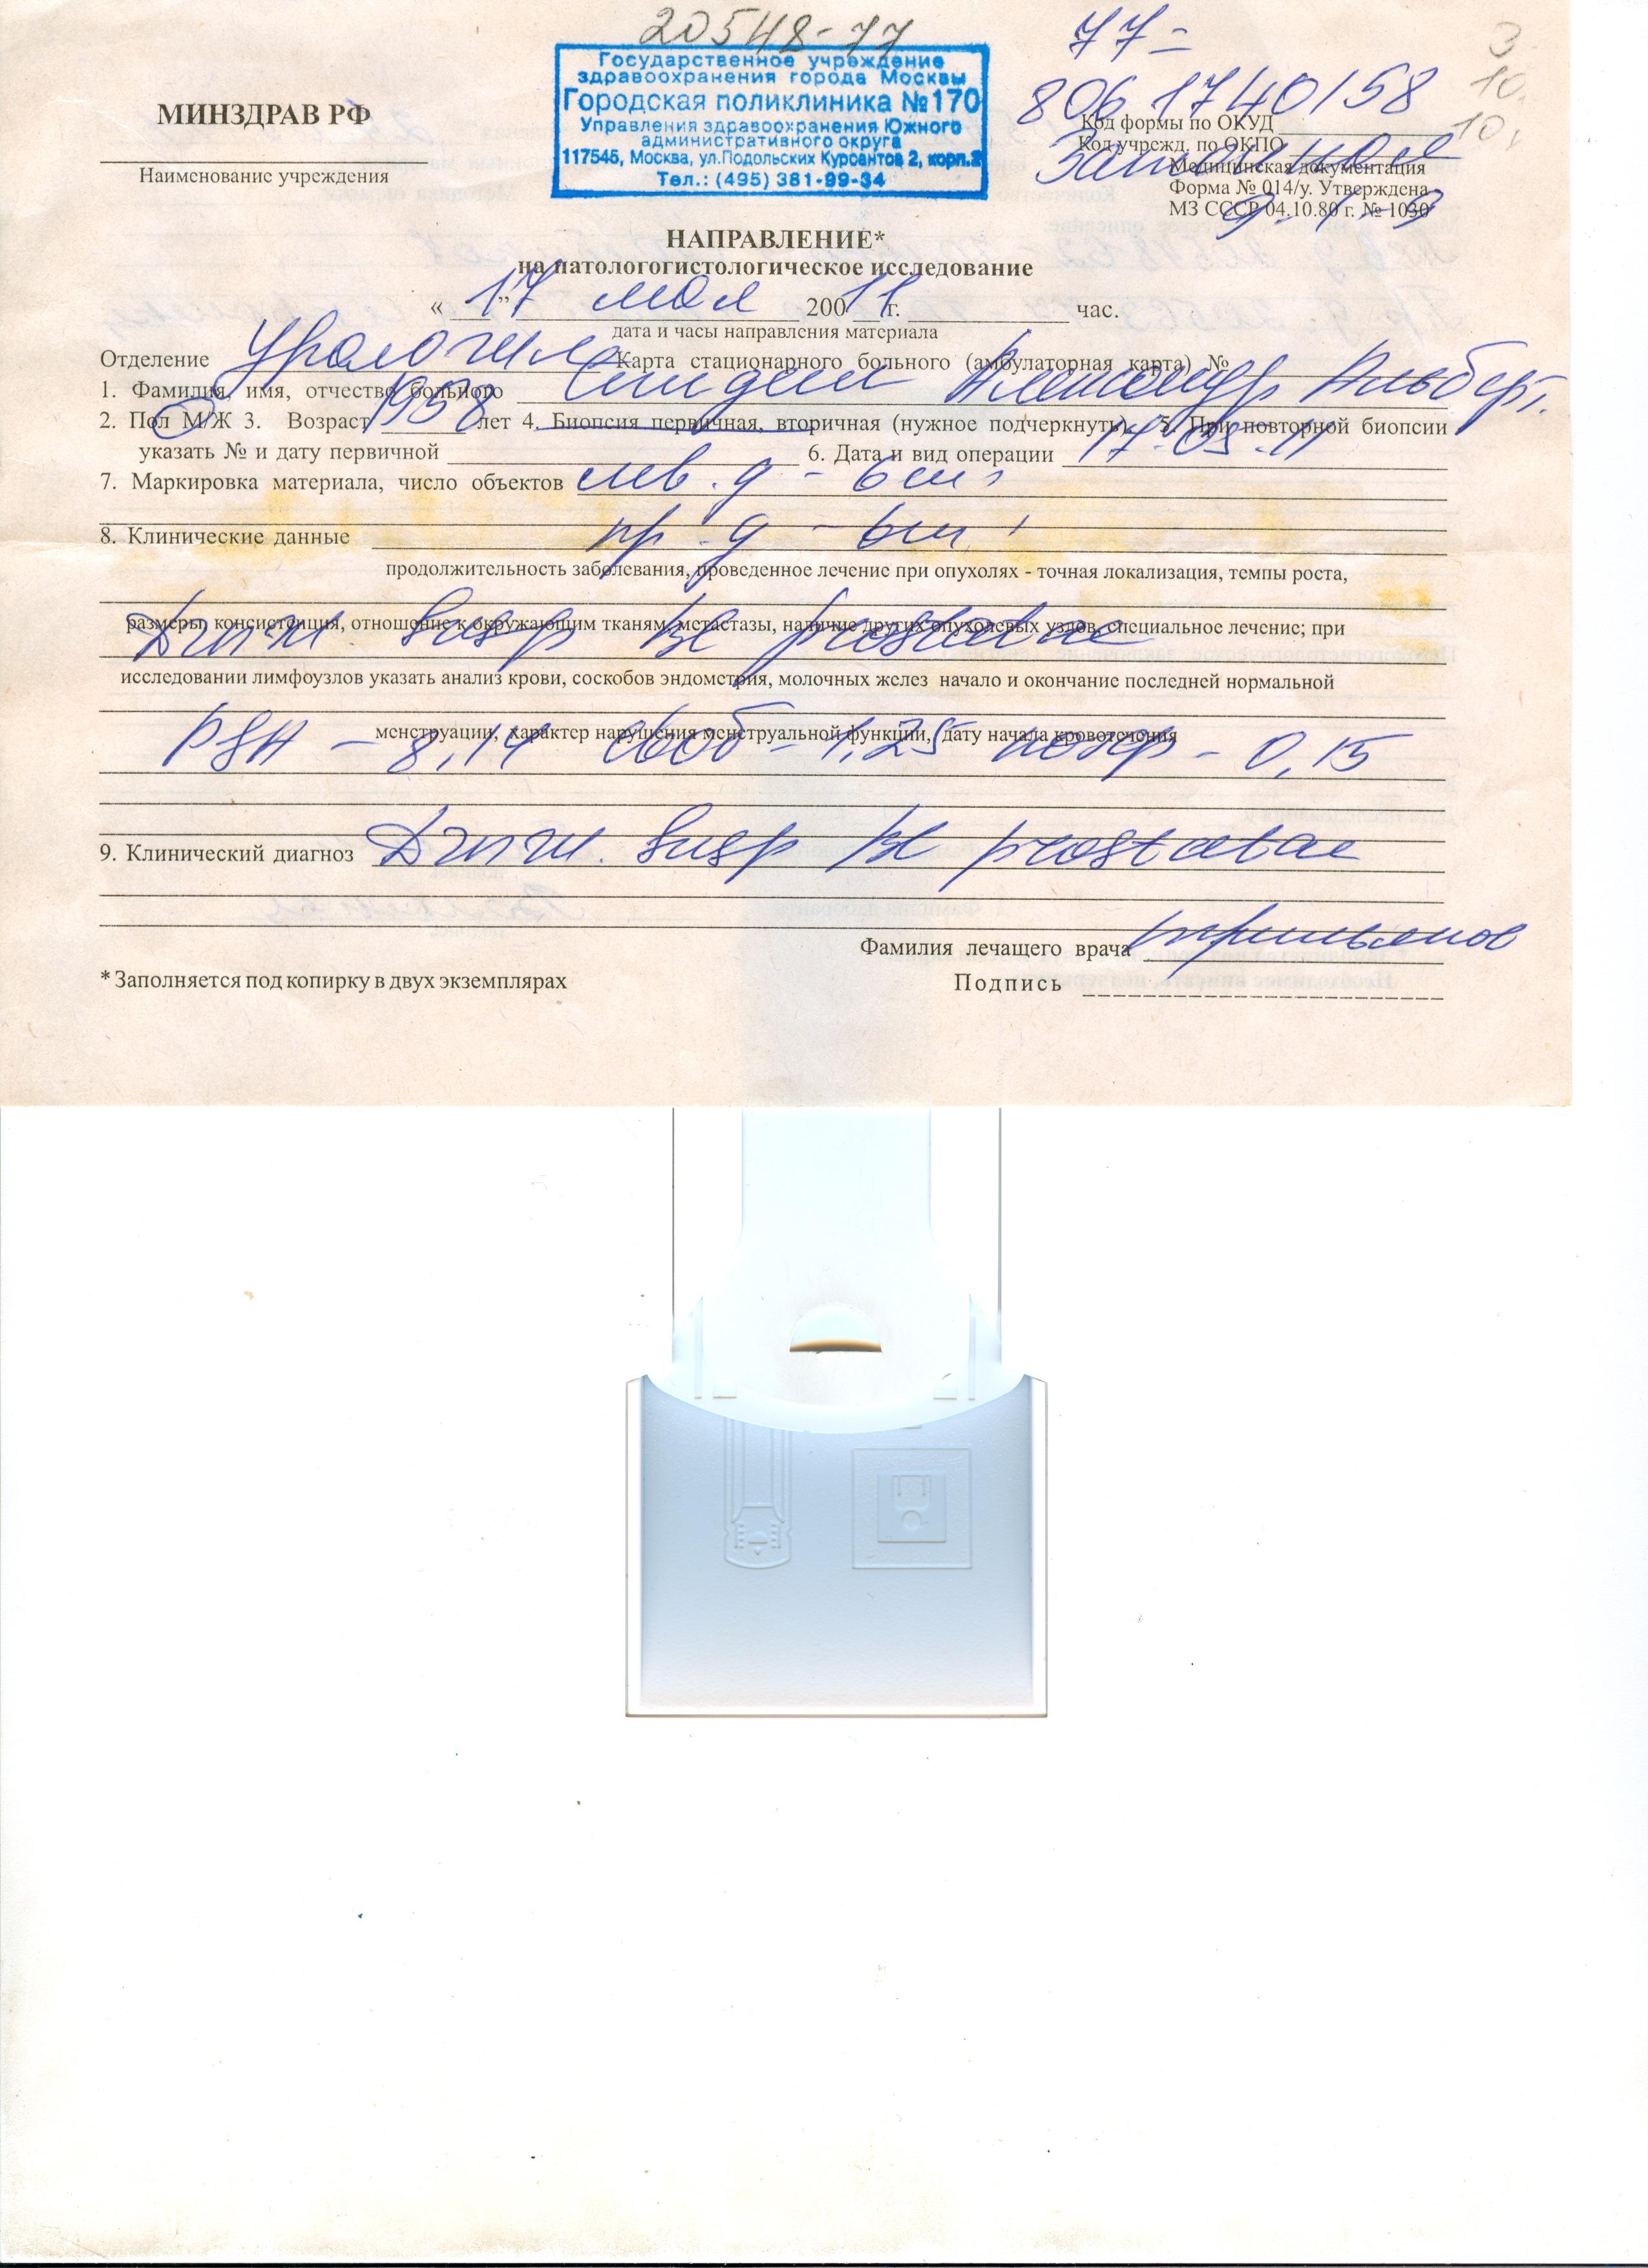 20548-77
77-
Государственное учреждение
здравоохранения города Москвы
Городская поликлиника №170
Управления здравоохранения Южного
административного округа
117545, Москва, ул.Подольских Курсантов 2, корп.2
Тел.: (495) 381-99-34
МИНЗДРАВ РФ
Наименование учреждения
806 1740/58
3
10
10
Код формы по ОКУД
Код учрежд. по ОКПО
Медицинская документация
Форма № 014/у. Утверждена
МЗ СССР 04.10.80 г. № 1030
НАПРАВЛЕНИЕ*
на патологогистологическое исследование
« 17 ” мая 2011 г. час.
дата и часы направления материала
Отделение Урология Карта стационарного больного (амбулаторная карта) №
1. Фамилия, имя, отчество больного Александр Альберт.
2. Пол М/Ж 3. Возраст 1958 лет 4. Биопсия первичная, вторичная (нужное подчеркнуть). 5. При повторной биопсии
указать № и дату первичной 6. Дата и вид операции 17.05.11
7. Маркировка материала, число объектов лев. д - 6 шт
8. Клинические данные пр. д - 6 шт
продолжительность заболевания, проведенное лечение при опухолях - точная локализация, темпы роста,
размеры, консистенция, отношение к окружающим тканям, метастазы, наличие других опухолевых узлов, специальное лечение; при
ДГПЖ. Susp Bl prostatae
исследовании лимфоузлов указать анализ крови, соскобов эндометрия, молочных желез начало и окончание последней нормальной
менструации, характер нарушения менструальной функции, дату начала кровотечения
PSA - 8,14 своб - 1,25 - 0,15
9. Клинический диагноз ДГПЖ. Susp Bl prostatae
Фамилия лечащего врача
* Заполняется под копирку в двух экземплярах
Подпись